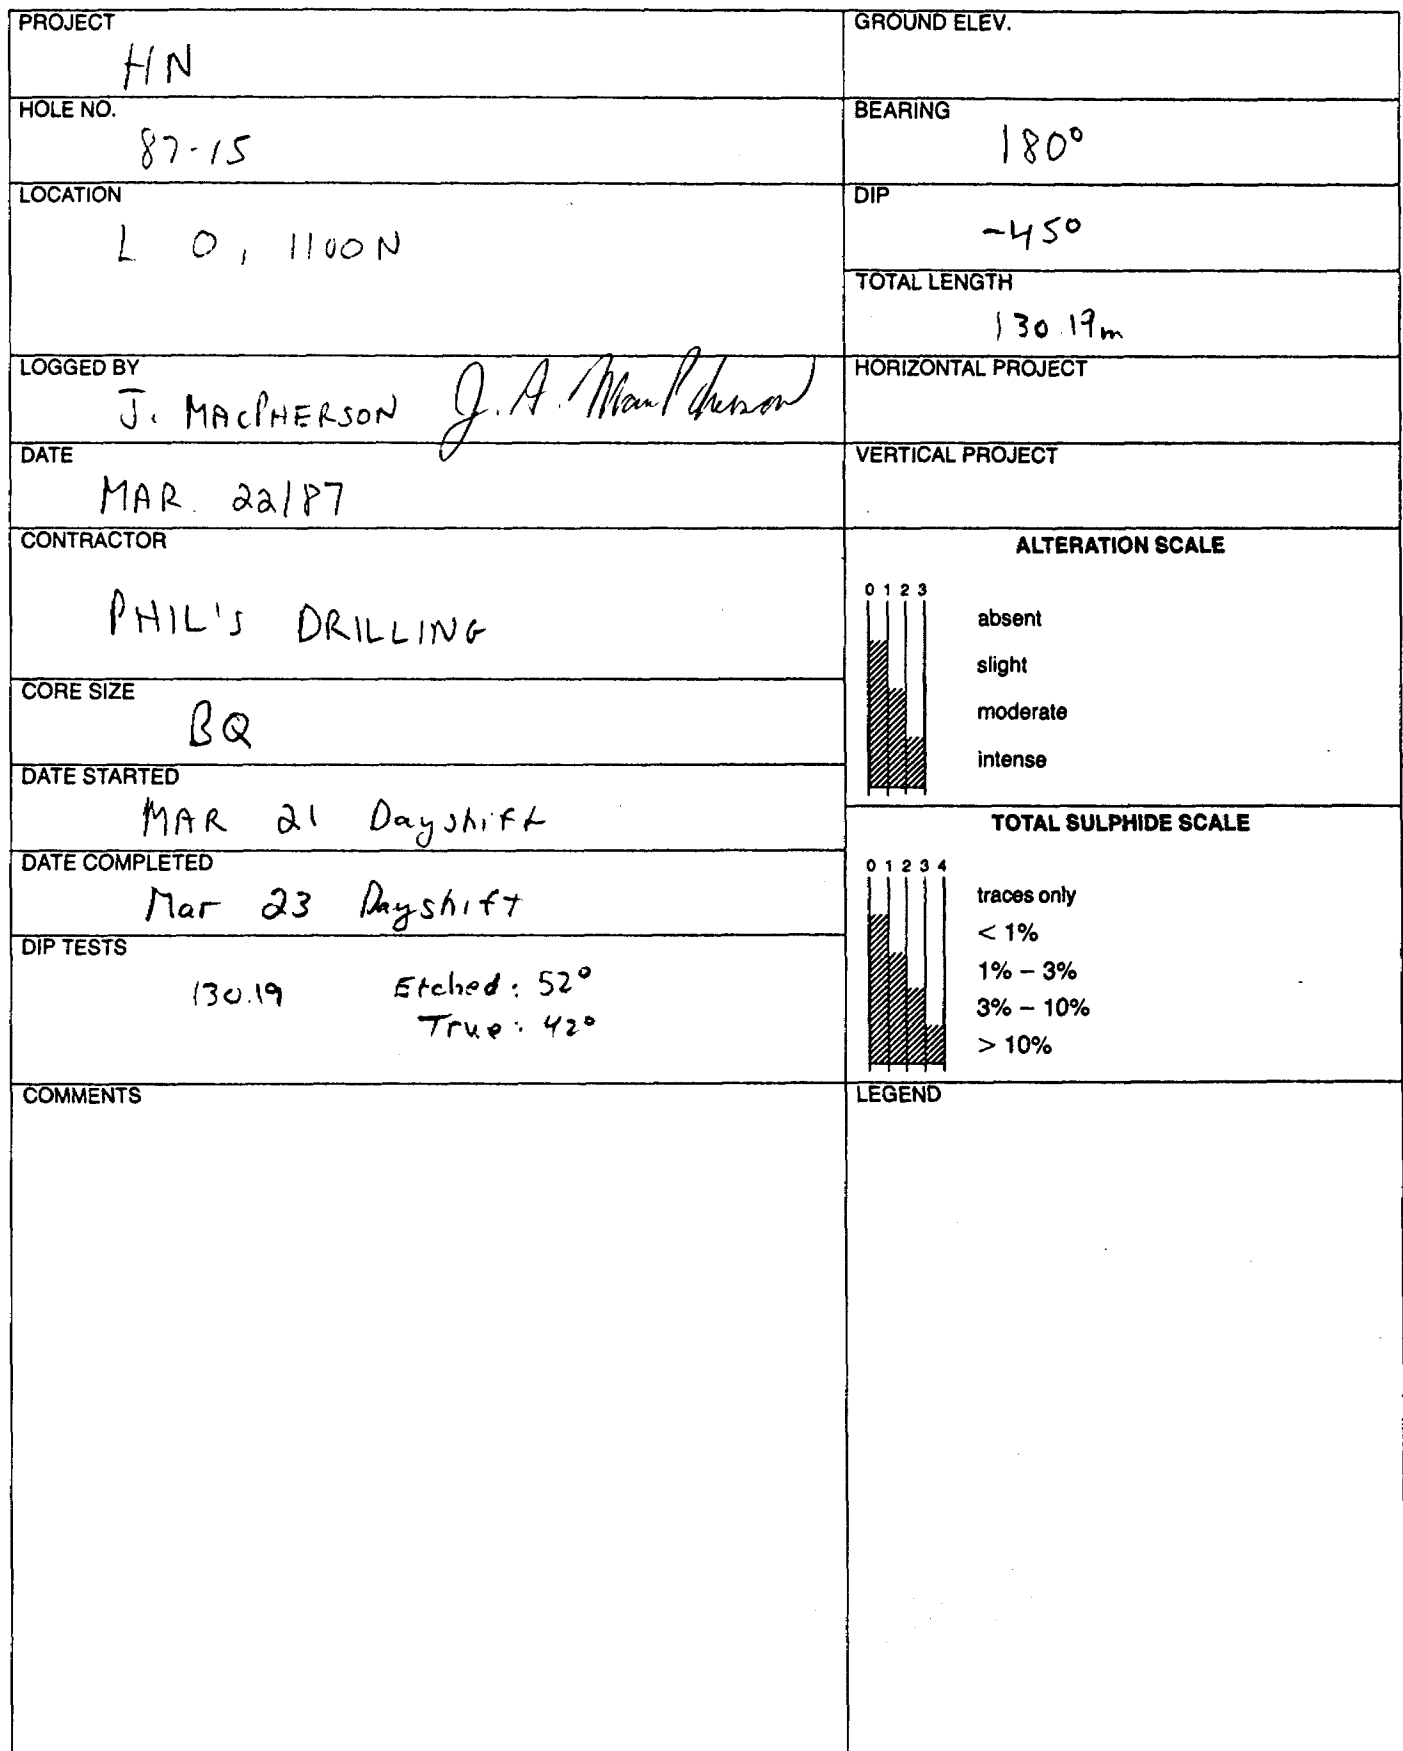 PROJECT
HN
HOLE NO.
87-15
LOCATION
L O, 1100N
LOGGED BY
J. MACPHERSON J. A. MacPherson
DATE
MAR. 22/87
CONTRACTOR
PHIL'S DRILLING
CORE SIZE
BQ
DATE STARTED
MAR 21 Dayshift
DATE COMPLETED
Mar 23 Dayshift
DIP TESTS
130.19 Etched: 52°
True: 42°
COMMENTS
GROUND ELEV.
BEARING
180°
DIP
-45°
TOTAL LENGTH
130.19m
HORIZONTAL PROJECT
VERTICAL PROJECT
ALTERATION SCALE
0 1 2 3
absent
slight
moderate
intense
TOTAL SULPHIDE SCALE
0 1 2 3 4
traces only
< 1%
1% – 3%
3% – 10%
> 10%
LEGEND